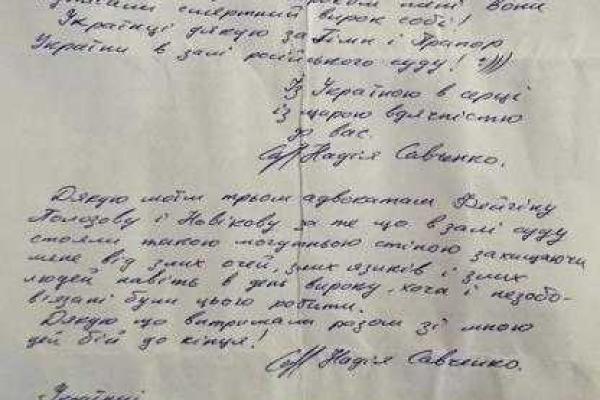 вирок собі!
Українці дякую за Гімн і Прапор
України в залі російського суду! :)))
Із Україною в серці
із щирою вдячністю
до вас.
Надія Савченко.
Дякую моїм трьом адвокатам Фейгіну
Полозову і Новікову за те що в залі суду
стояли такою могутньою стіною захищаючи
мене від злих очей, злих язиків і злих
людей навіть в день вироку, хоча і незобо-
вязані були цього робити.
Дякую що витримали разом зі мною
цей бій до кінця!
Надія Савченко.
Українці